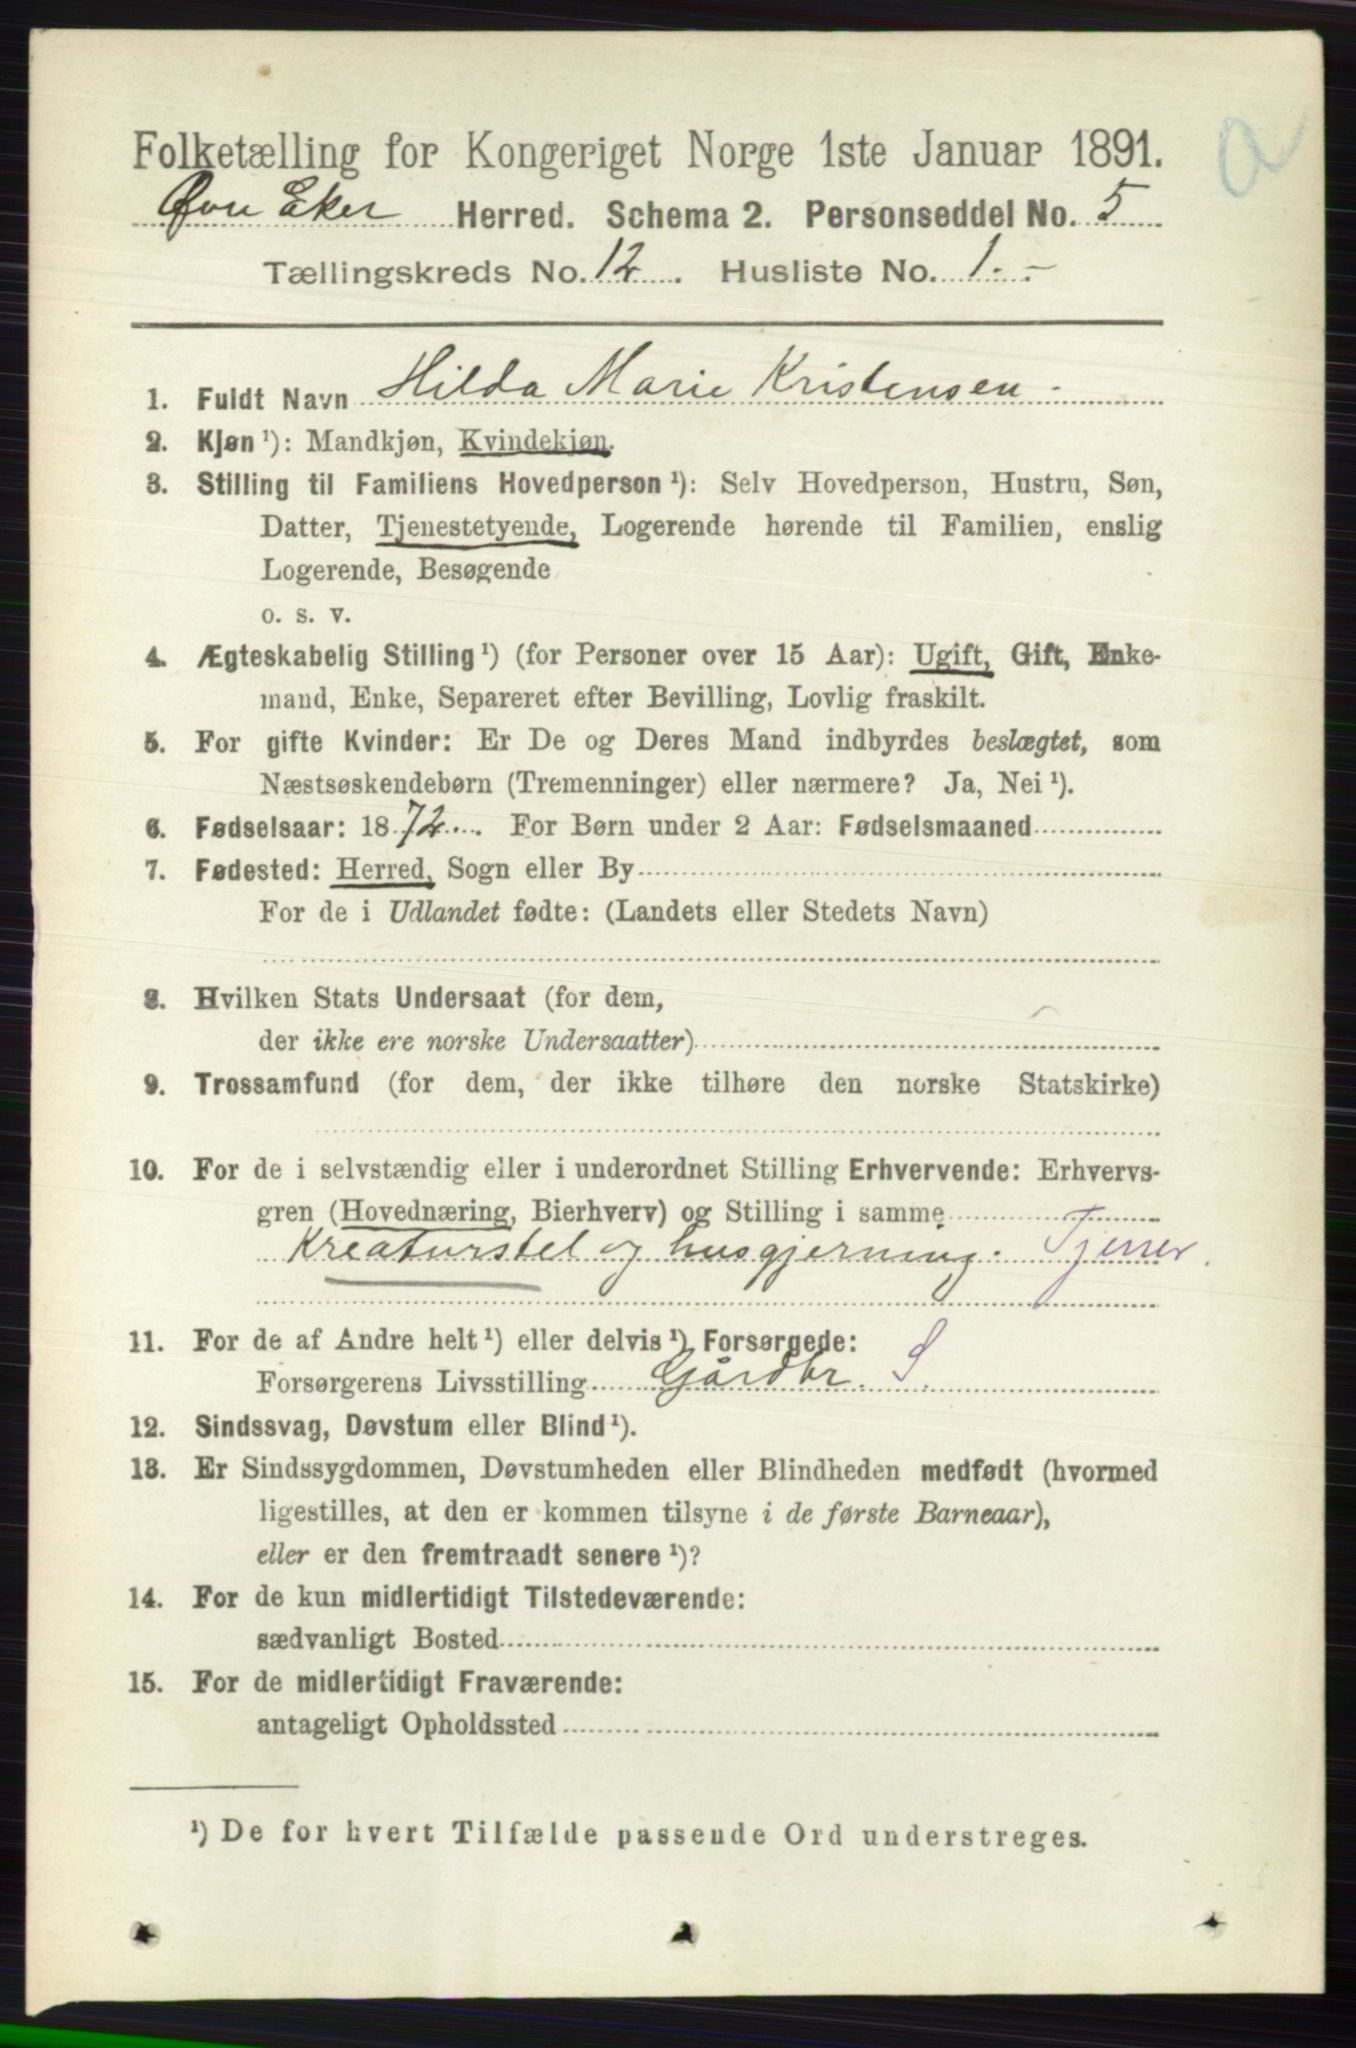 a
Folketælling for Kongeriget Norge 1ste Januar 1891.
Øvre Eker Herred. Schema 2. Personseddel No. 5
Tællingskreds No. 12. Husliste No. 1.-
1. Fuldt Navn Hilda Marie Kristensen.
2. Kjøn ¹): Mandkjøn, Kvindekjøn.
3. Stilling til Familiens Hovedperson ¹): Selv Hovedperson, Hustru, Søn,
Datter, Tjenestetyende, Logerende hørende til Familien, enslig
Logerende, Besøgende
o. s. v.
4. Ægteskabelig Stilling ¹) (for Personer over 15 Aar): Ugift, Gift, Enke-
mand, Enke, Separeret efter Bevilling, Lovlig fraskilt.
5. For gifte Kvinder: Er De og Deres Mand indbyrdes beslægtet, som
Næstsøskendebørn (Tremenninger) eller nærmere? Ja, Nei ¹).
6. Fødselsaar: 1872. For Børn under 2 Aar: Fødselsmaaned
7. Fødested: Herred, Sogn eller By
For de i Udlandet fødte: (Landets eller Stedets Navn)
8. Hvilken Stats Undersaat (for dem,
der ikke ere norske Undersaatter)
9. Trossamfund (for dem, der ikke tilhøre den norske Statskirke)
10. For de i selvstændig eller i underordnet Stilling Erhvervende: Erhvervs-
gren (Hovednæring, Bierhverv) og Stilling i samme
Kreaturstel og husgjerning. Tjener.
11. For de af Andre helt ¹) eller delvis ¹) Forsørgede:
Forsørgerens Livsstilling Gårdbr. S.
12. Sindssvag, Døvstum eller Blind ¹).
13. Er Sindssygdommen, Døvstumheden eller Blindheden medfødt (hvormed
ligestilles, at den er kommen tilsyne i de første Barneaar),
eller er den fremtraadt senere ¹)?
14. For de kun midlertidigt Tilstedeværende:
sædvanligt Bosted
15. For de midlertidigt Fraværende:
antageligt Opholdssted
¹) De for hvert Tilfælde passende Ord understreges.